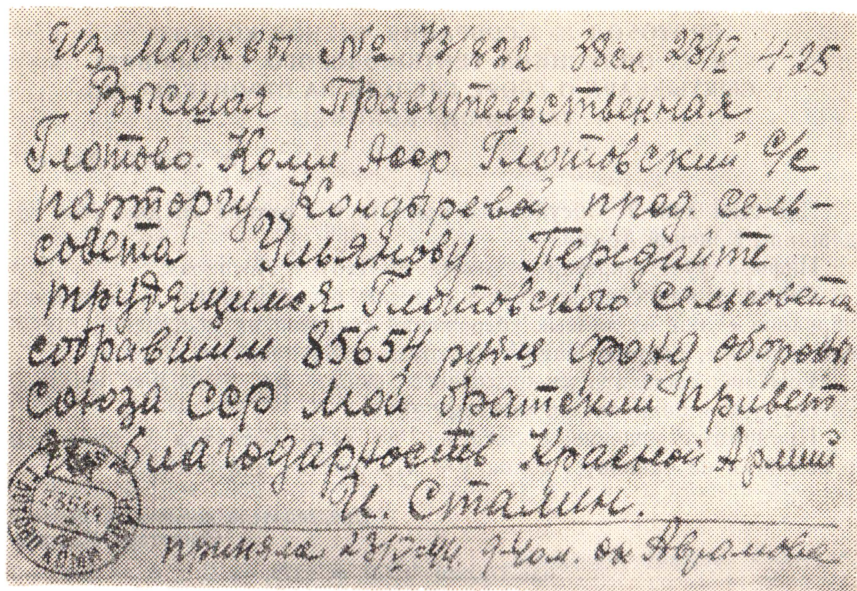 Из Москвы № 73/822 38 сл. 23/V 4-25
Высшая Правительственная
Глотово. Коми Асср Глотовский с/с
парторгу Кондыревой пред. сель-
совета Ульянову Передайте
трудящимся Глотовского сельсовета
собравшим 85654 рубля фонд обороны
союза ССР мой братский привет
и благодарность Красной Армии
И. Сталин.
приняла 23/V-44. 9-40м.